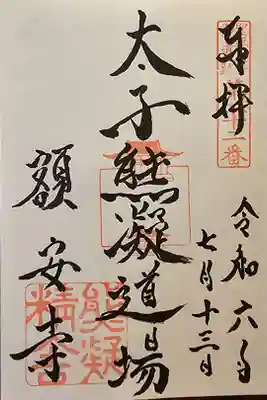 奉拝
令和六年
七月十三日
太子熊凝道場
額安寺
熊凝
精舎